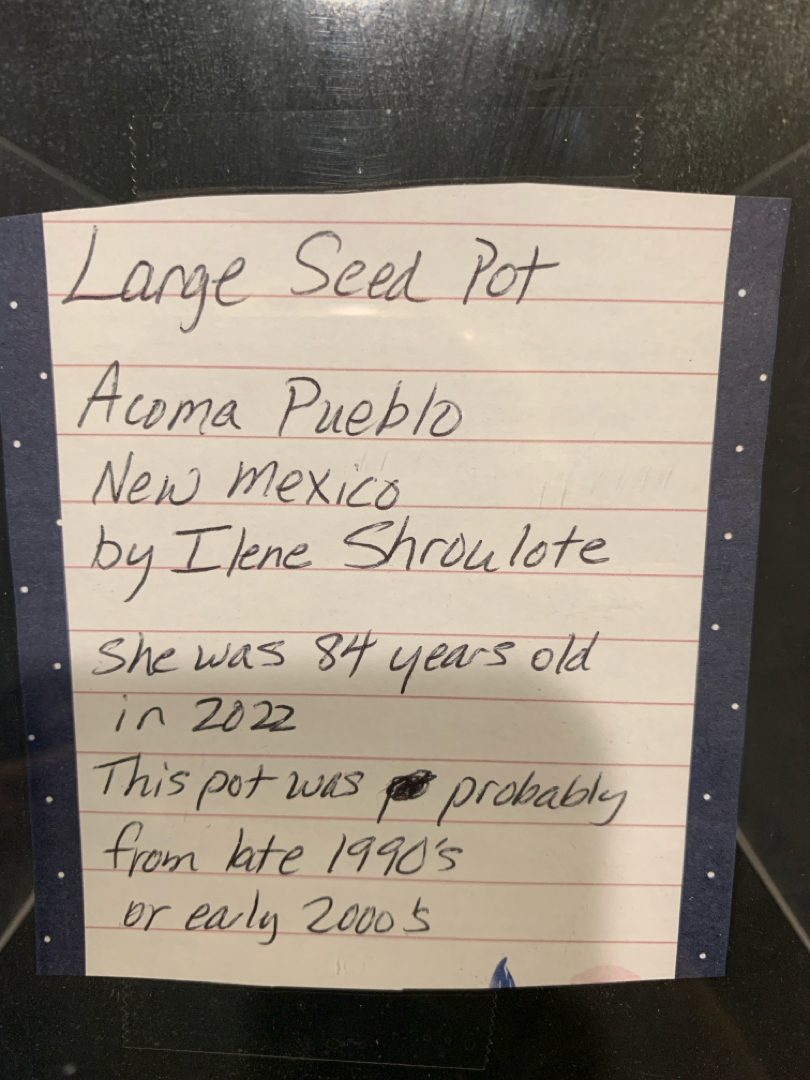 Large Seed Pot
Acoma Pueblo
New Mexico
by Ilene Shroulote
She was 84 years old
in 2022
This pot was probably
from late 1990's
or early 2000's